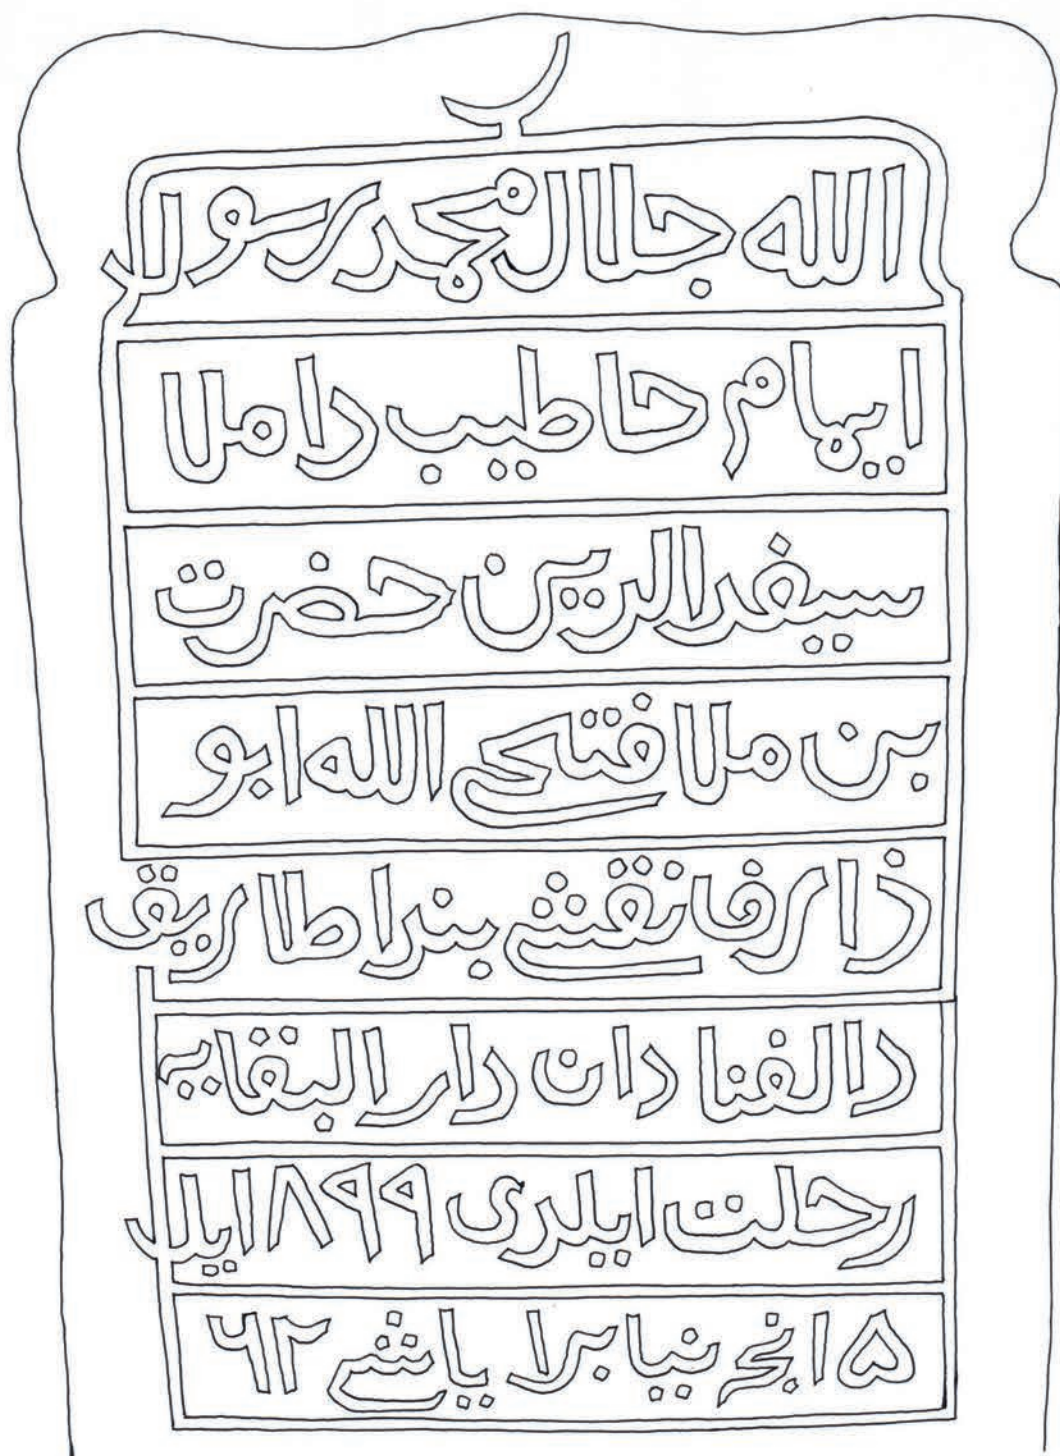 الله جلال محمد رسولا
ايمام حاطيب داملا
سيفدالدين حضرت
بن ملا فتحى الله ابو
ذا رفا نقشى بندا طاريق
دالفنا دان دار البقايه
رحلت ايلدى ١٨٩٩ ايل
۵ انجى نيابرا ياشى ۶۲